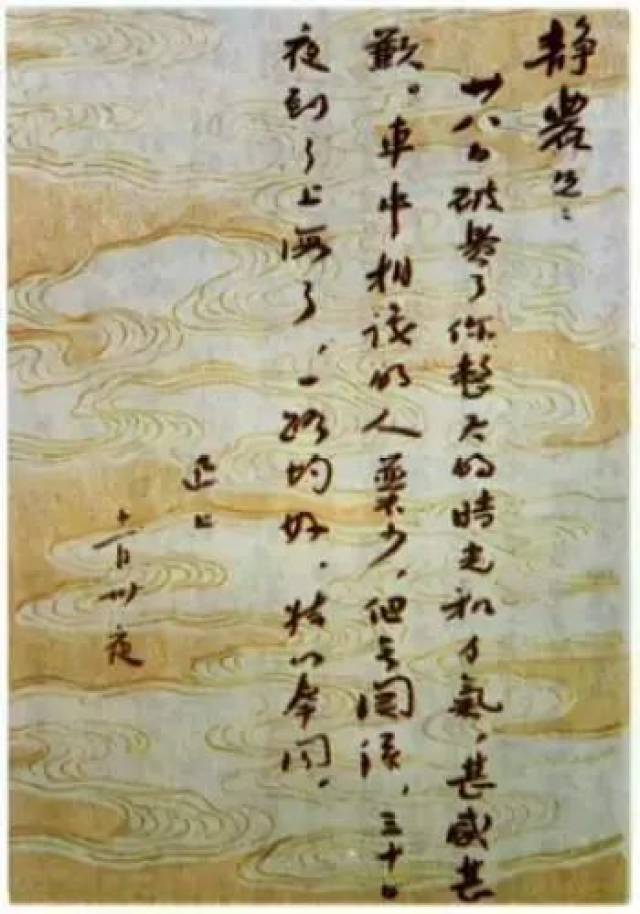 靜農兄：
廿八日破費了你整天的時光和力氣，甚感甚
歉。車中相識的人並不少，但无關係，三十日
夜到了上海了，一路均好，特以奉聞。
迅上
十一月卅夜